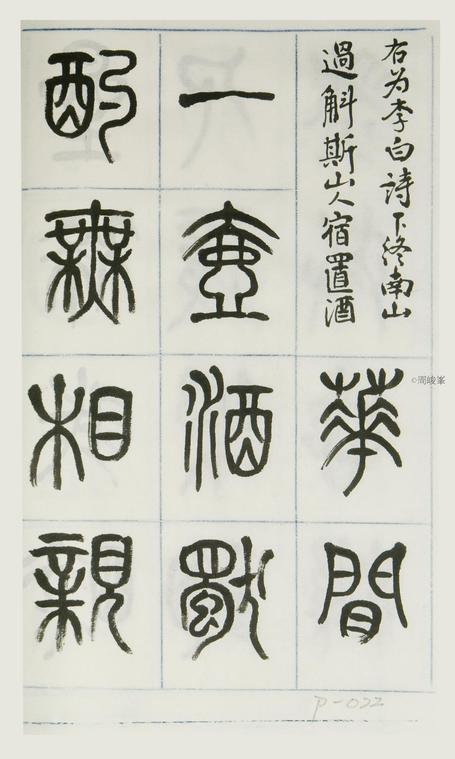 右为李白詩下终南山
過斛斯山人宿置酒
華間
一壺酒獨
酌無相親
©周峻峯
P-022